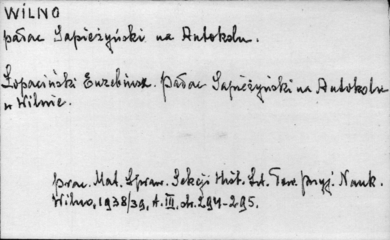 WILNO
pałac Sapieżyński na Antokolu.
Łopaciński Euzebiusz. Pałac Sapieżyński na Antokolu
w Wilnie.
Prac. Mat. Spraw. Sekcji Hist. Szt. Tow. Przyj. Nauk.
Wilno, 1938/39, t. III, str. 294-295.